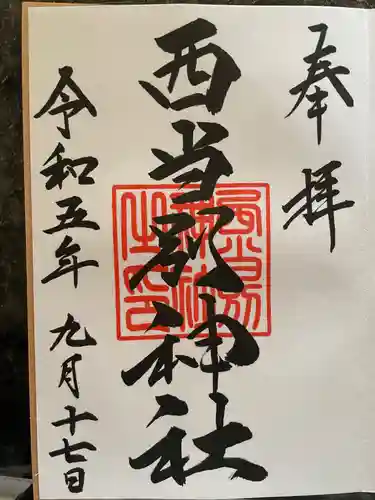 奉拝
西当別神社
令和五年九月十七日